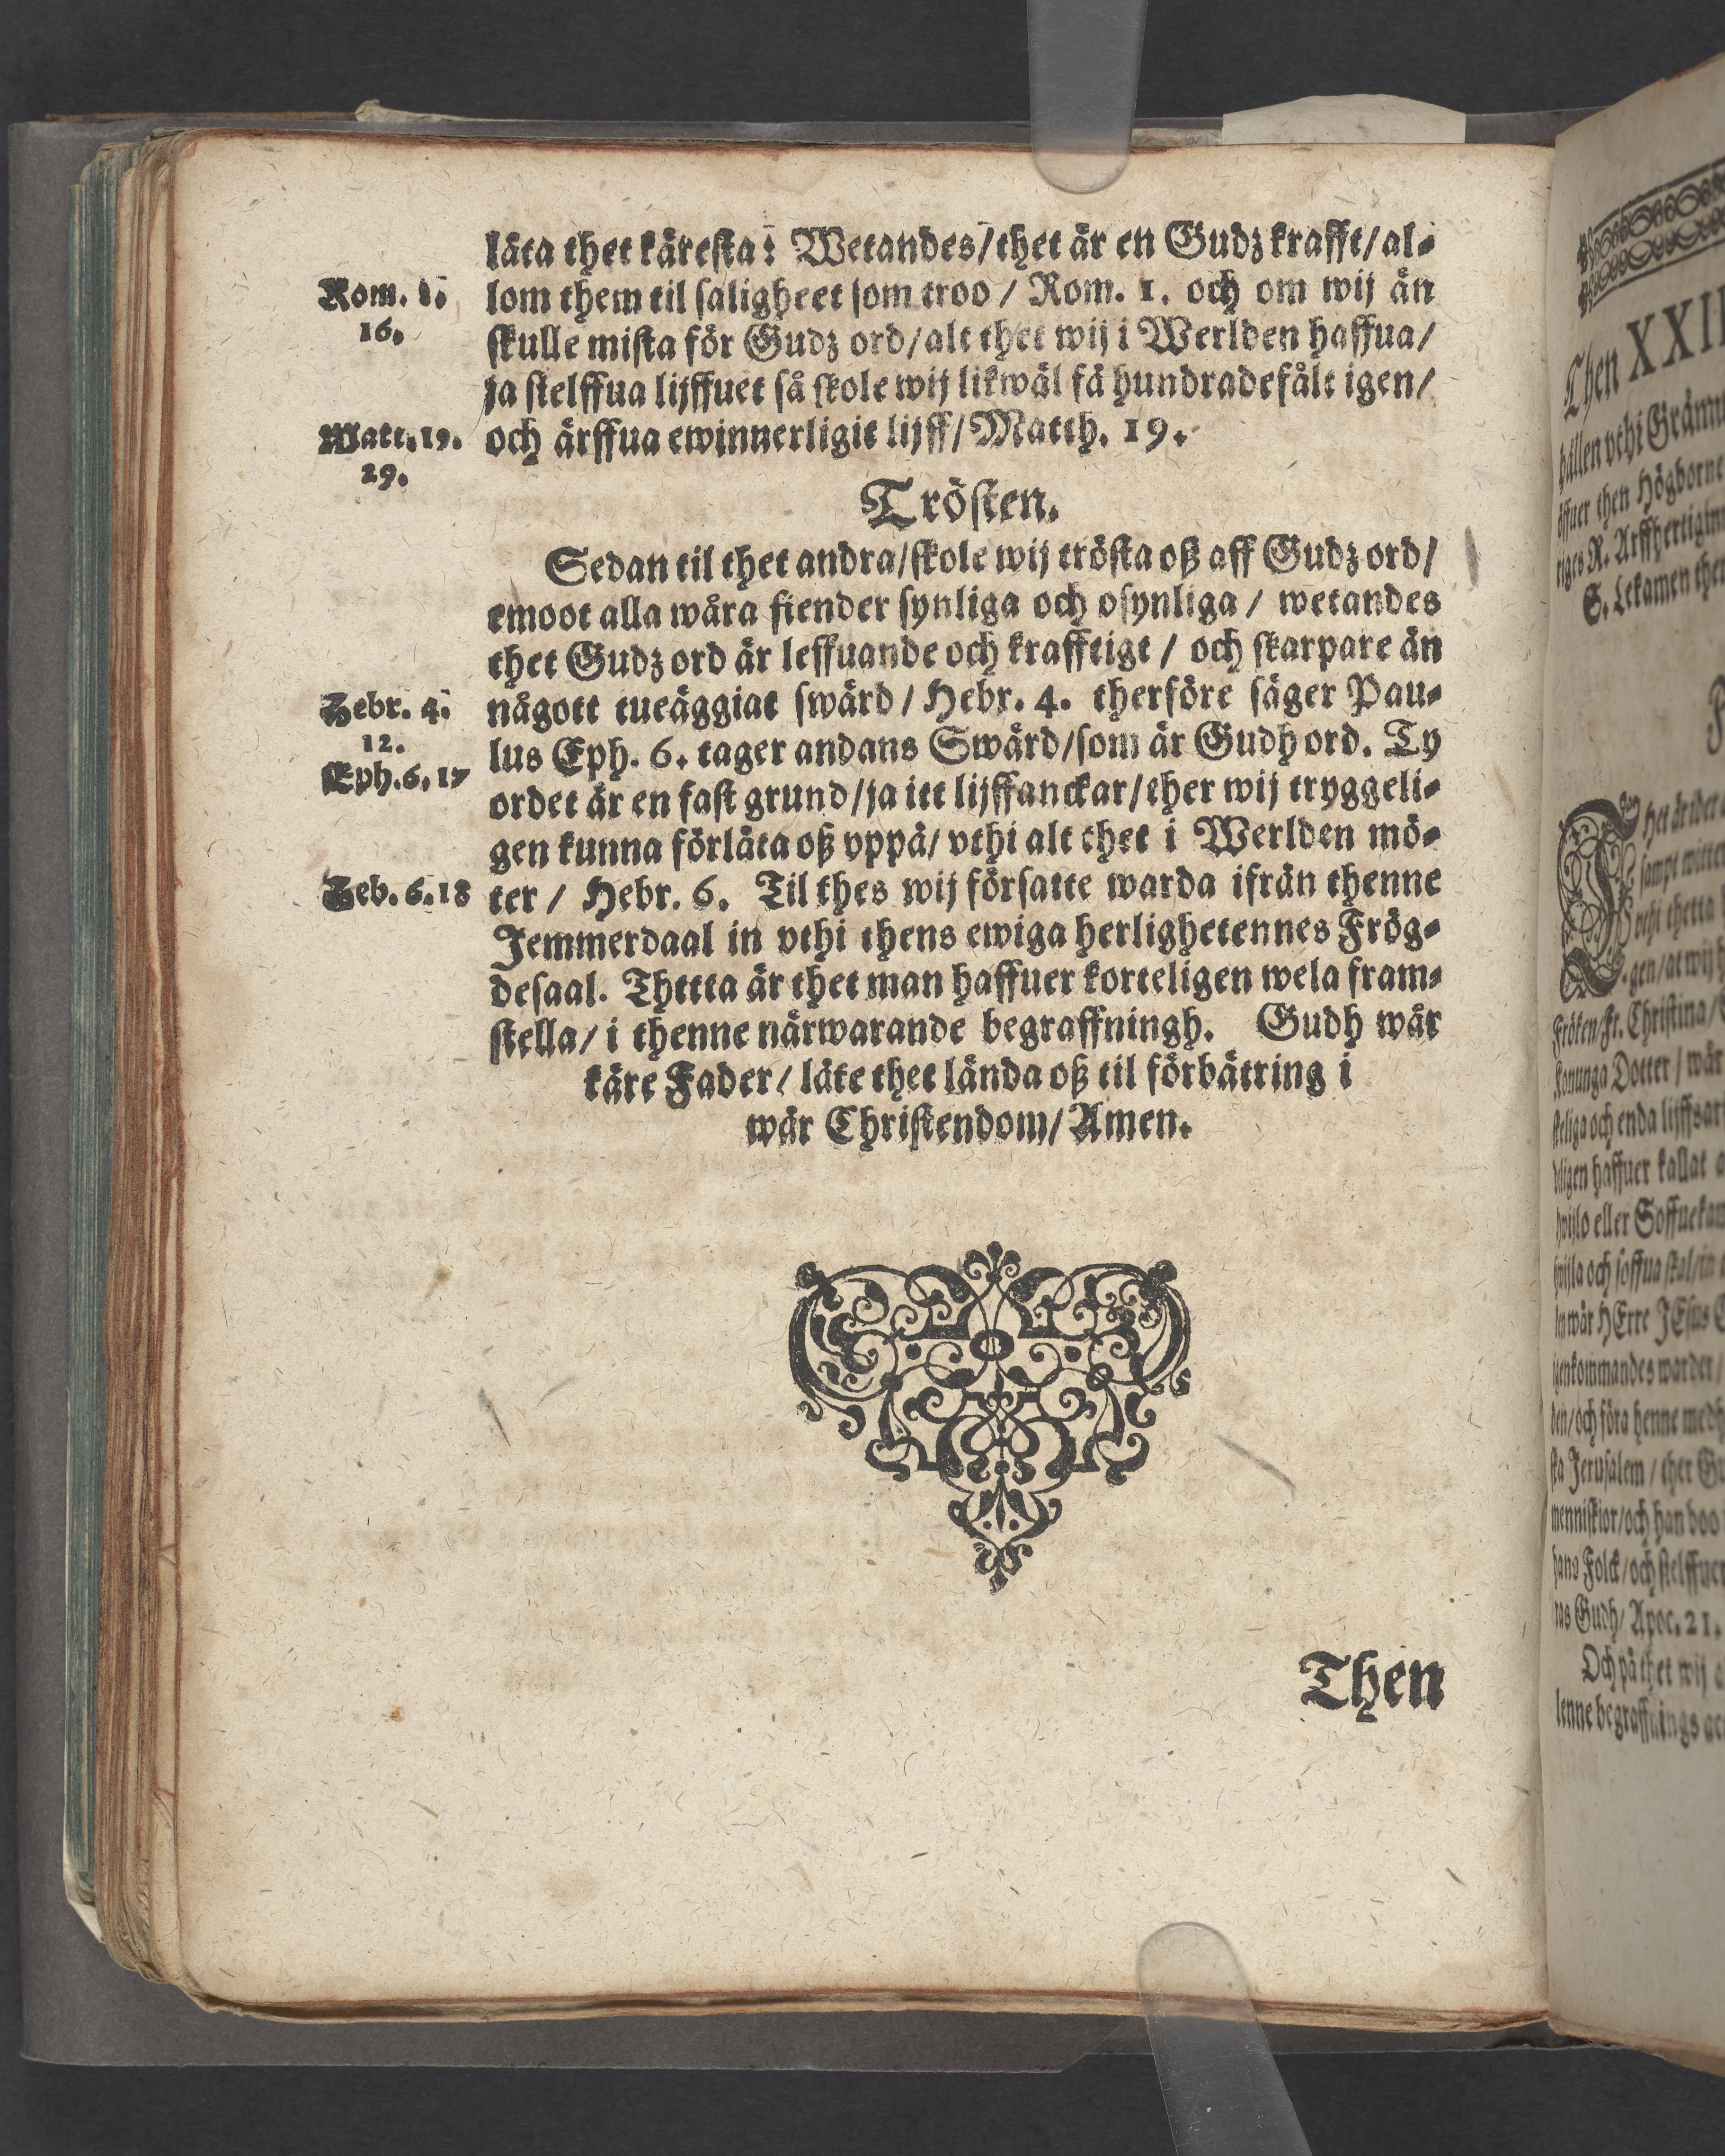 låta thet käresta: Wetandes/thet är en Gudz krafft/al-
Rom. 1.
16.
lom them til saligheet som troo / Rom. 1. och om wij än
skulle mista för Gudz ord/alt thet wij i Werlden haffua/
ja sielffua lijffuet så skole wij likwäl få hundradefålt igen/
Matt.19.
29.
och ärffua ewinnerligit lijff/Matth. 19.
Trösten.
Sedan til thet andra/skole wij trösta oß aff Gudz ord/
emoot alla wåra fiender synliga och osynliga / wetandes
thet Gudz ord är leffuande och krafftigt / och skarpare än
Hebr. 4.
12.
någott tueäggiat swärd / Hebr. 4. therföre säger Pau-
lus Eph. 6. tager andans Swärd/som är Gudh ord. Ty
Eph.6.17
ordet är en fast grund/ja itt lijffanckar/ther wij tryggeli-
gen kunna förläta oß vppå/ vthi alt thet i Werlden mö-
Heb. 6.18
ter / Hebr. 6. Til thes wij forsatte warda ifrån thenne
Jemmerdaal in vthi thens ewiga herlighetennes Frög-
desaal. Thttta är thet man haffuer korteligen wela fram-
stella/ i thenne närwarande begraffningh. Gudh wår
käre Fader/ låte thet lända oß til förbätring i
wår Christendom/Amen.
Then
Then XXII
hållen vthi
öffuer then Högborne
riges R. Arffhertiginn
S. Lekamen
sampt
vthi thetta
gen/at wij
Fröken/Fr. Christina/
Konunga Dotter / wår
och enda
haffuer kallat
eller
och soffua
wår HErre JEsus
igenkommandes warder /
den/och föra henne medh
Jerusalem / ther
menniskior/och han boo
hans Folck/och sielffuer
ras Gudh/ Apoc. 21.
Och på thet wij
lenne begraffnings